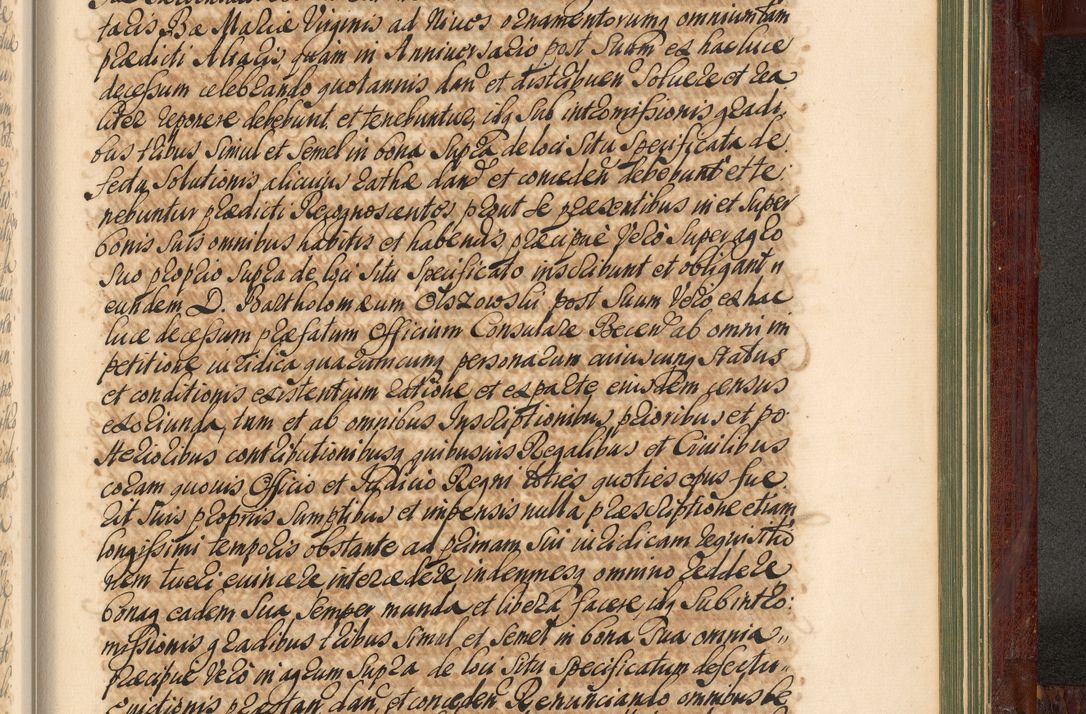 taris Bæ Mariæ Virginis ad Nives ornamentorumq omnium tam
prædicti Altaris quam in Anniversario post Suum ex hac luce
decessum celebrando quotannis dand et distribuen Solvere et rea
liter reponere debebunt et tenebuntur, idq Sub intromissionis gradi
bus tribus Simul et Semel in bona Supra de loci Situ Specificata de
fectu Solutionis alicuius rathæ dand et conceden debebunt et te
nebuntur prædicti Recognoscentes prout se præsentibus in et Super
bonis Suis omnibus habitis et habendis, præcipuè Verò Super agro
Suo proprio Supra de loci Situ Specificato inscribunt et obligant
eundem D. Bartholomæum Olszowski post Suum Verò ex hac
luce decessum præfatum Officium Consulare Becen ab omni im
petitione iuridica quarumcunq personarum cuiuscunq Status
et conditionis existentium ratione et ex parte eiusdem census
exorienda, tum et ab omnibus Inscriptionibus, prioribus et po
sterioribus contributionibusq quibusvis Regalibus et Civilibus
coram quovis Officio et Judicio Regni toties quoties opus fue
rit Suis propriis Sumptibus et impensis nulla præscriptione etiam
longissimi temporis obstante ad primam Sui iuridicam requisitio
nem tueri evincere intercedere indemnesq omnino reddere
bonaq eadem Sua Semper munda et libera facere, idq Sub intro:
missionis gradibus tribus Simul et Semel in bona Sua omnia
præcipuè Verò in agrum Supra de loci Situ Specificatum defectu
evictionis præstan dand et conceden Renunciando omnibus be